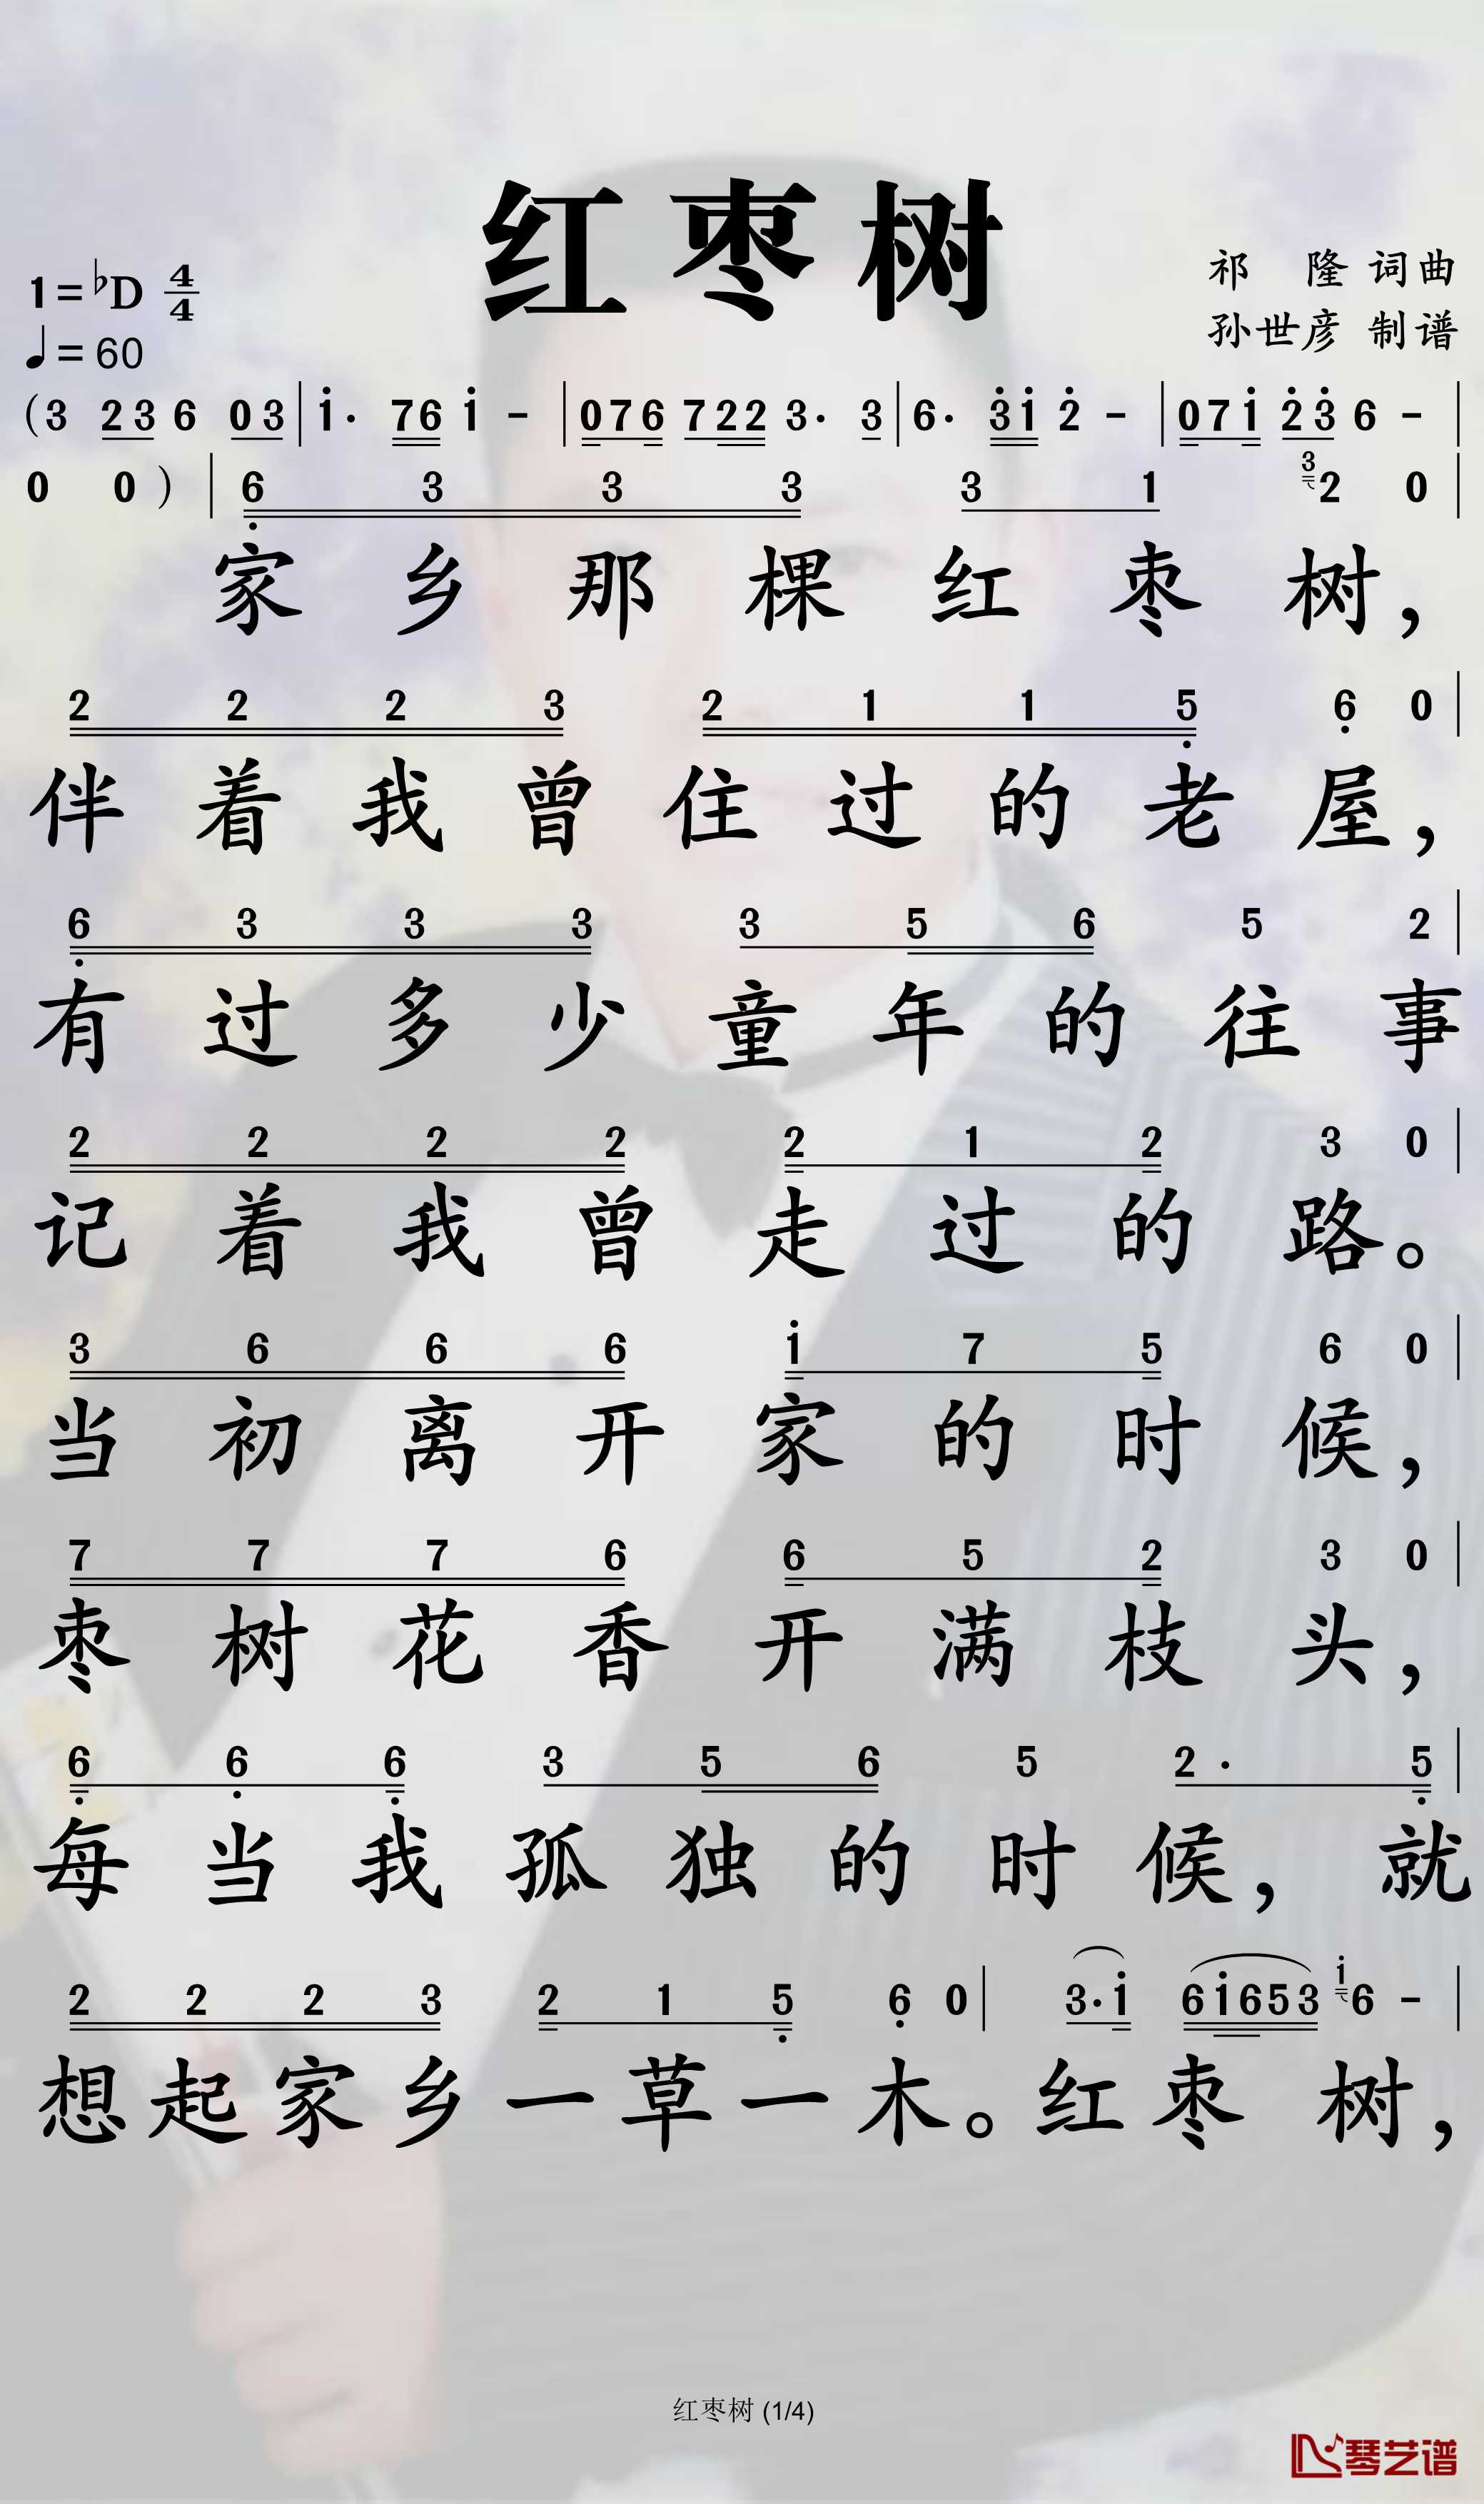 红枣树
祁 隆 词曲
孙世彦 制谱
1=♭D 4/4
♩=60
(3 23 6 03 | i· 76 i - | 076 722 3· 3 | 6· 3i 2 - | 07i 23 6 - |
0 0 ) | 6 3 3 3 3 1 3 2 0 |
家乡那棵红枣树，
2 2 2 3 2 1 1 5 6 0 |
伴着我曾住过的老屋，
6 3 3 3 3 5 6 5 2 |
有过多少童年的往事
2 2 2 2 2 1 2 3 0 |
记着我曾走过的路。
3 6 6 6 i 7 5 6 0 |
当初离开家的时候，
7 7 7 6 6 5 2 3 0 |
枣树花香开满枝头，
6 6 6 3 5 6 5 2· 5 |
每当我孤独的时候，就
2 2 2 3 2 1 5 6 0 | 3·i 6i653 i 6 - |
想起家乡一草一木。红枣树，
红枣树 (1/4)
琴艺谱